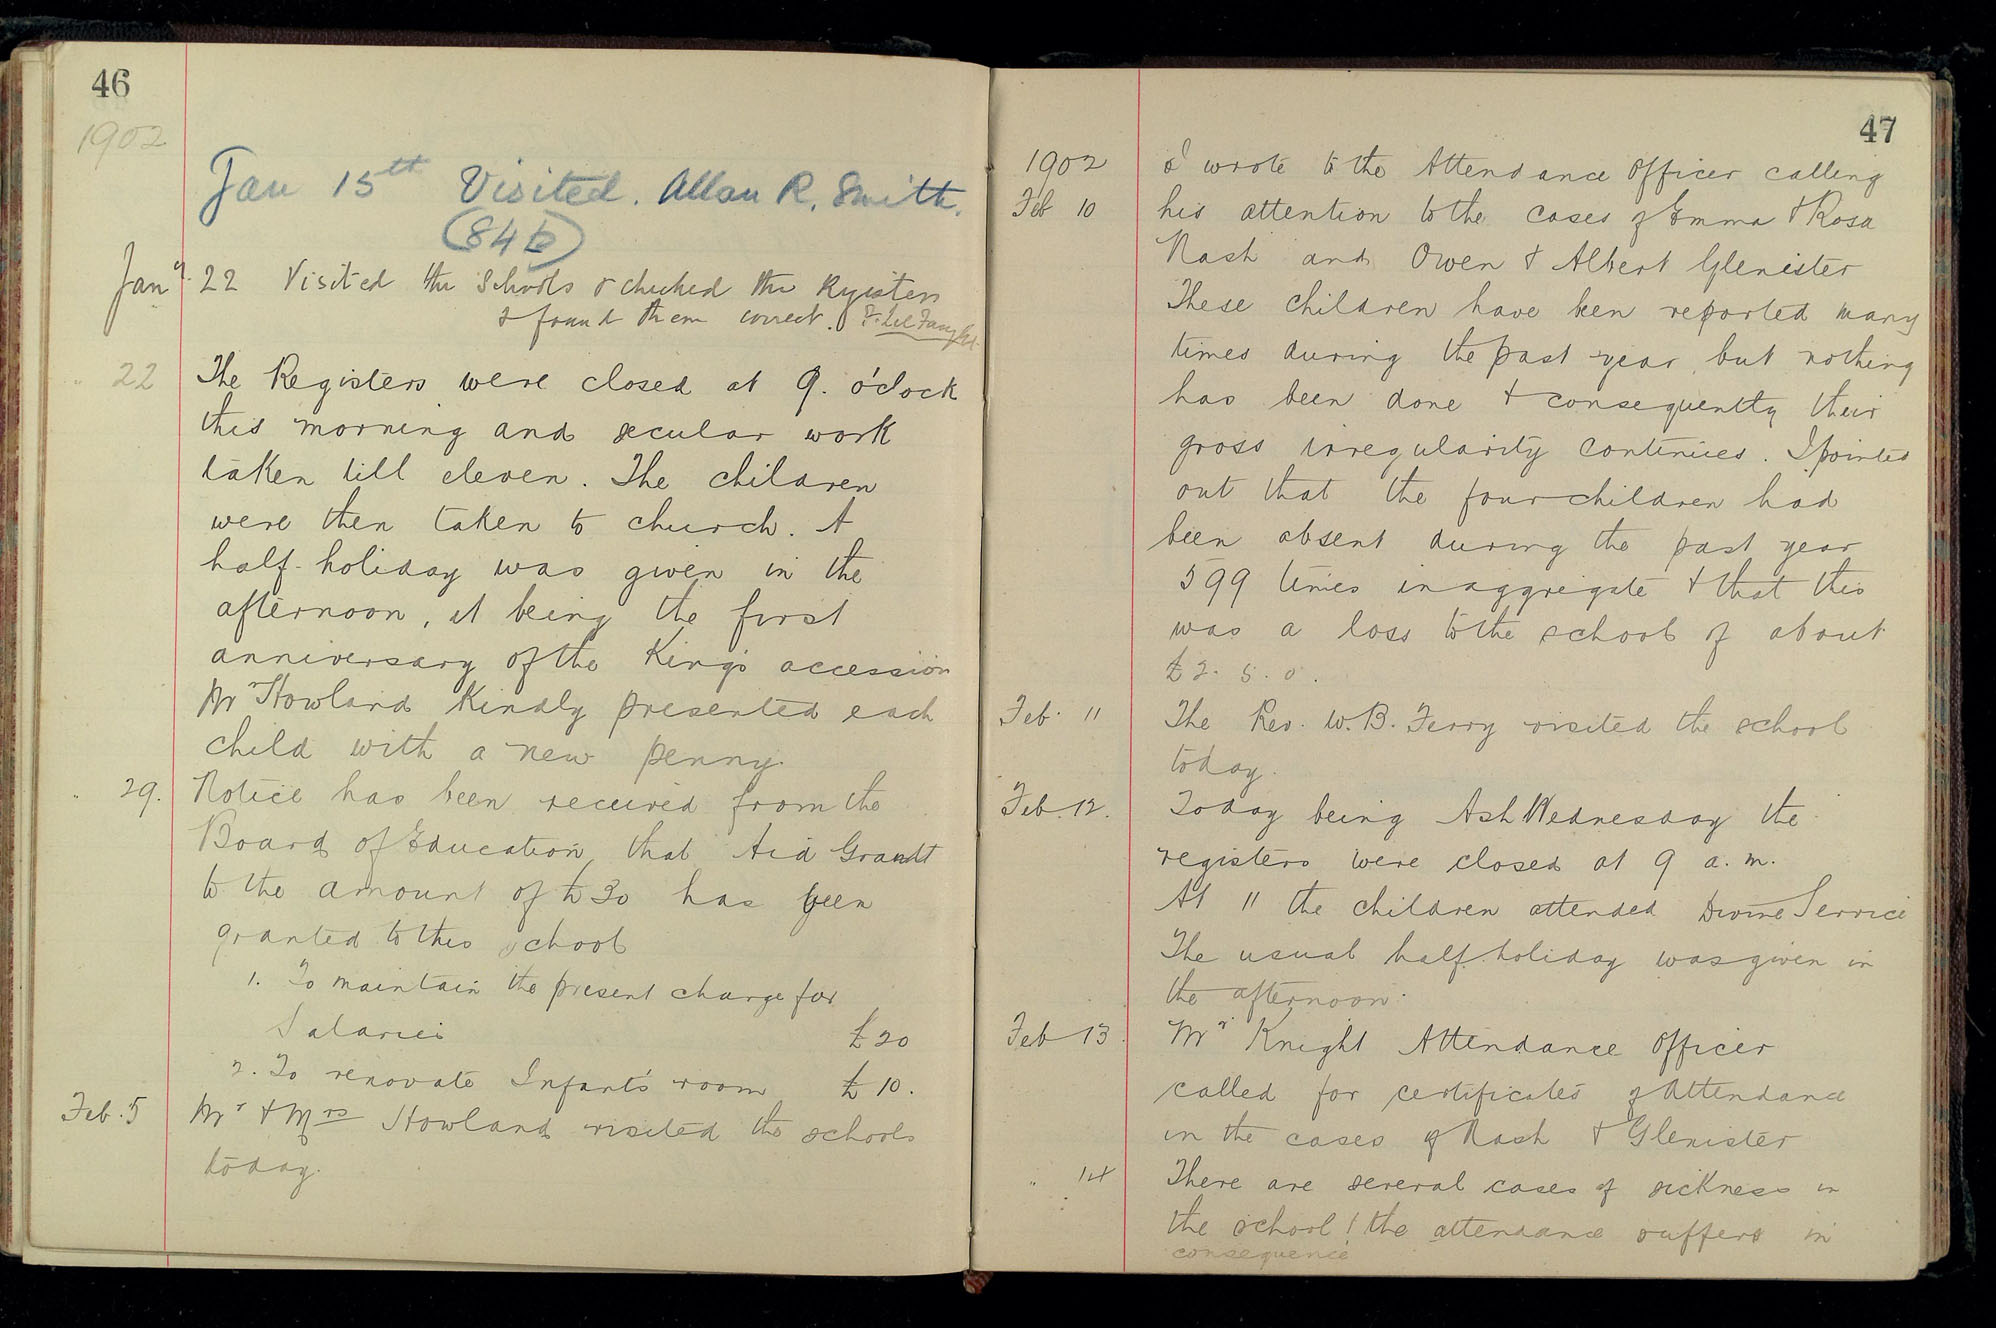 46
1902
Jan 15th Visited. Allan R. Smith.
(84b)
Jany. 22 Visited the Schools & checked the Registers
& found them correct.
" 22 The Registers were closed at 9. o'clock
this morning and secular work
taken till eleven. The children
were then taken to church. A
half-holiday was given in the
afternoon, it being the first
anniversary of the King's accession
Mr Howland kindly presented each
child with a new penny.
" 29. Notice has been received from the
Board of Education, that Aid Grant
to the amount of £30 has been
granted to this school
1. To maintain the present charge for
Salaries £20
2. To renovate Infants' room £10.
Feb. 5 Mr & Mrs Howland visited the schools
today.
47
1902 I wrote to the Attendance Officer calling
Feb 10 his attention to the cases of Emma & Rosa
Nash and Owen & Albert Glenister
These children have been reported many
times during the past year, but nothing
has been done & consequently their
gross irregularity continues. I pointed
out that the four children had
been absent during the past year
599 times in aggregate & that this
was a loss to the school of about
£2. 5. 0.
Feb. 11 The Rev. W. B. Ferry visited the school
today.
Feb. 12. Today being Ash Wednesday the
registers were closed at 9 a.m.
At 11 the children attended Divine Service
The usual half-holiday was given in
the afternoon.
Feb 13. Mr Knight Attendance Officer
called for certificates of Attendance
in the cases of Nash & Glenister
" 14 There are several cases of sickness in
the school! the attendance suffers in
consequence